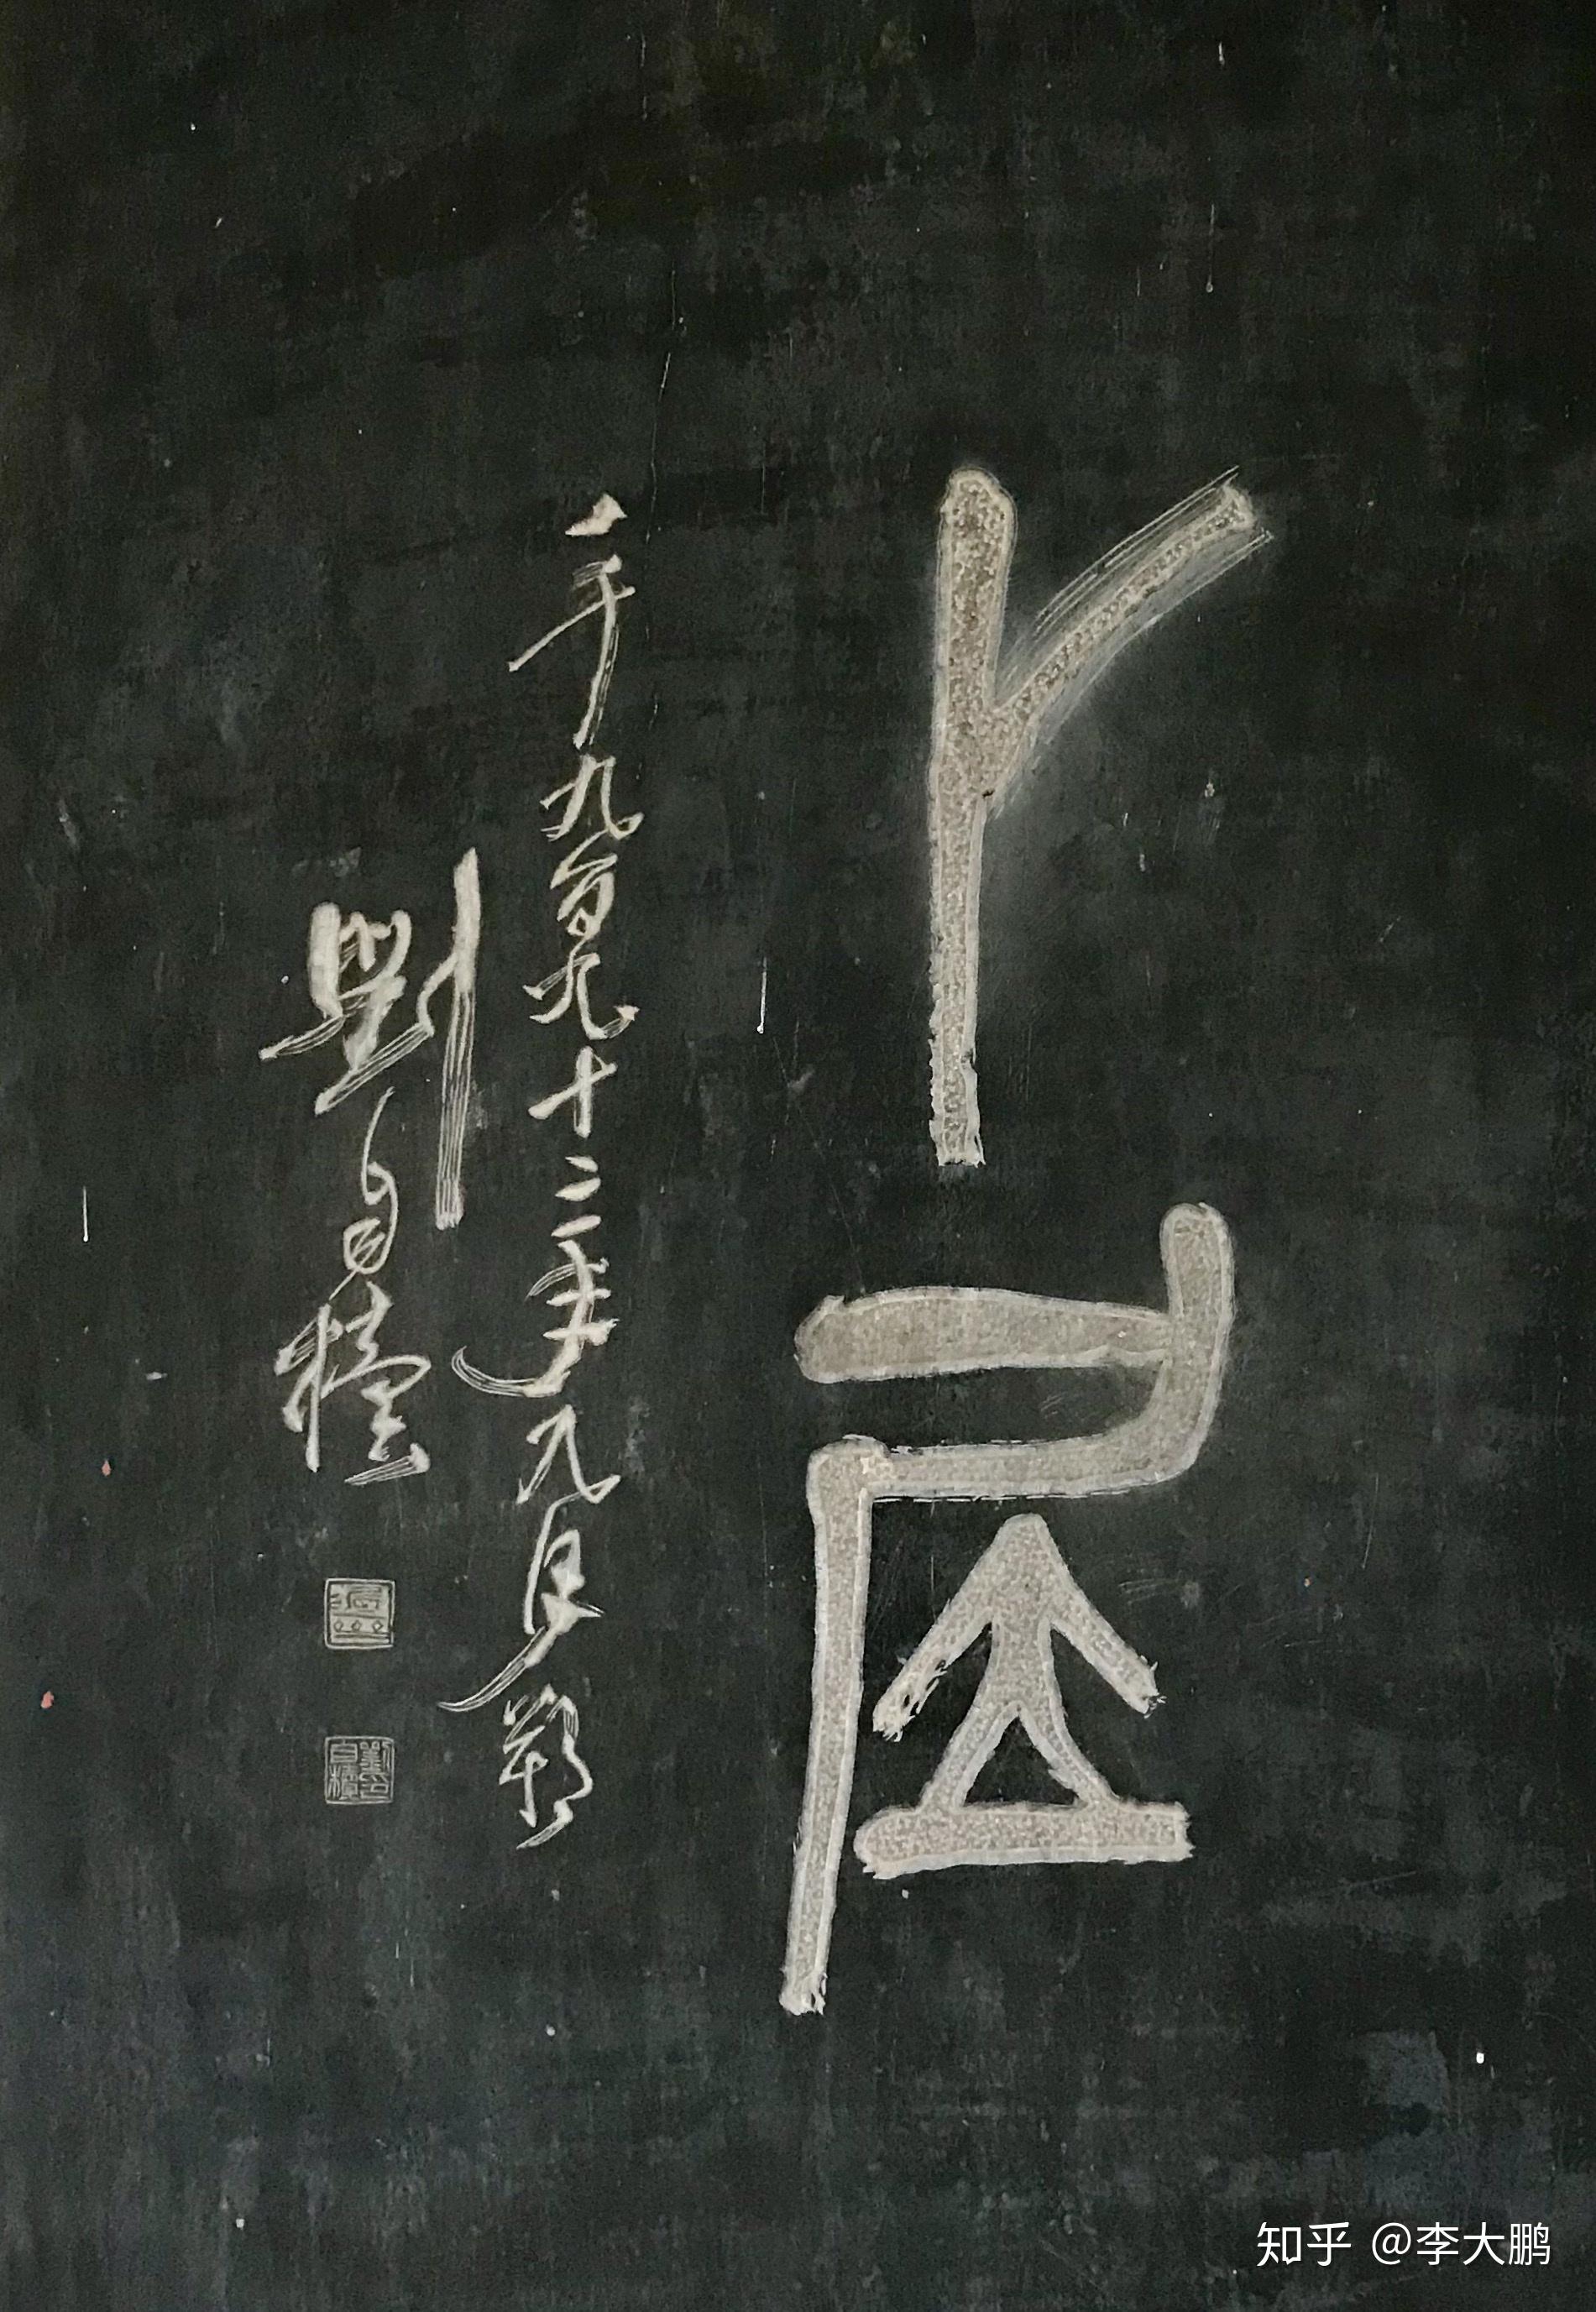 卜居
一千九百九十二年九月朔
劉自櫝
知乎 @李大鹏